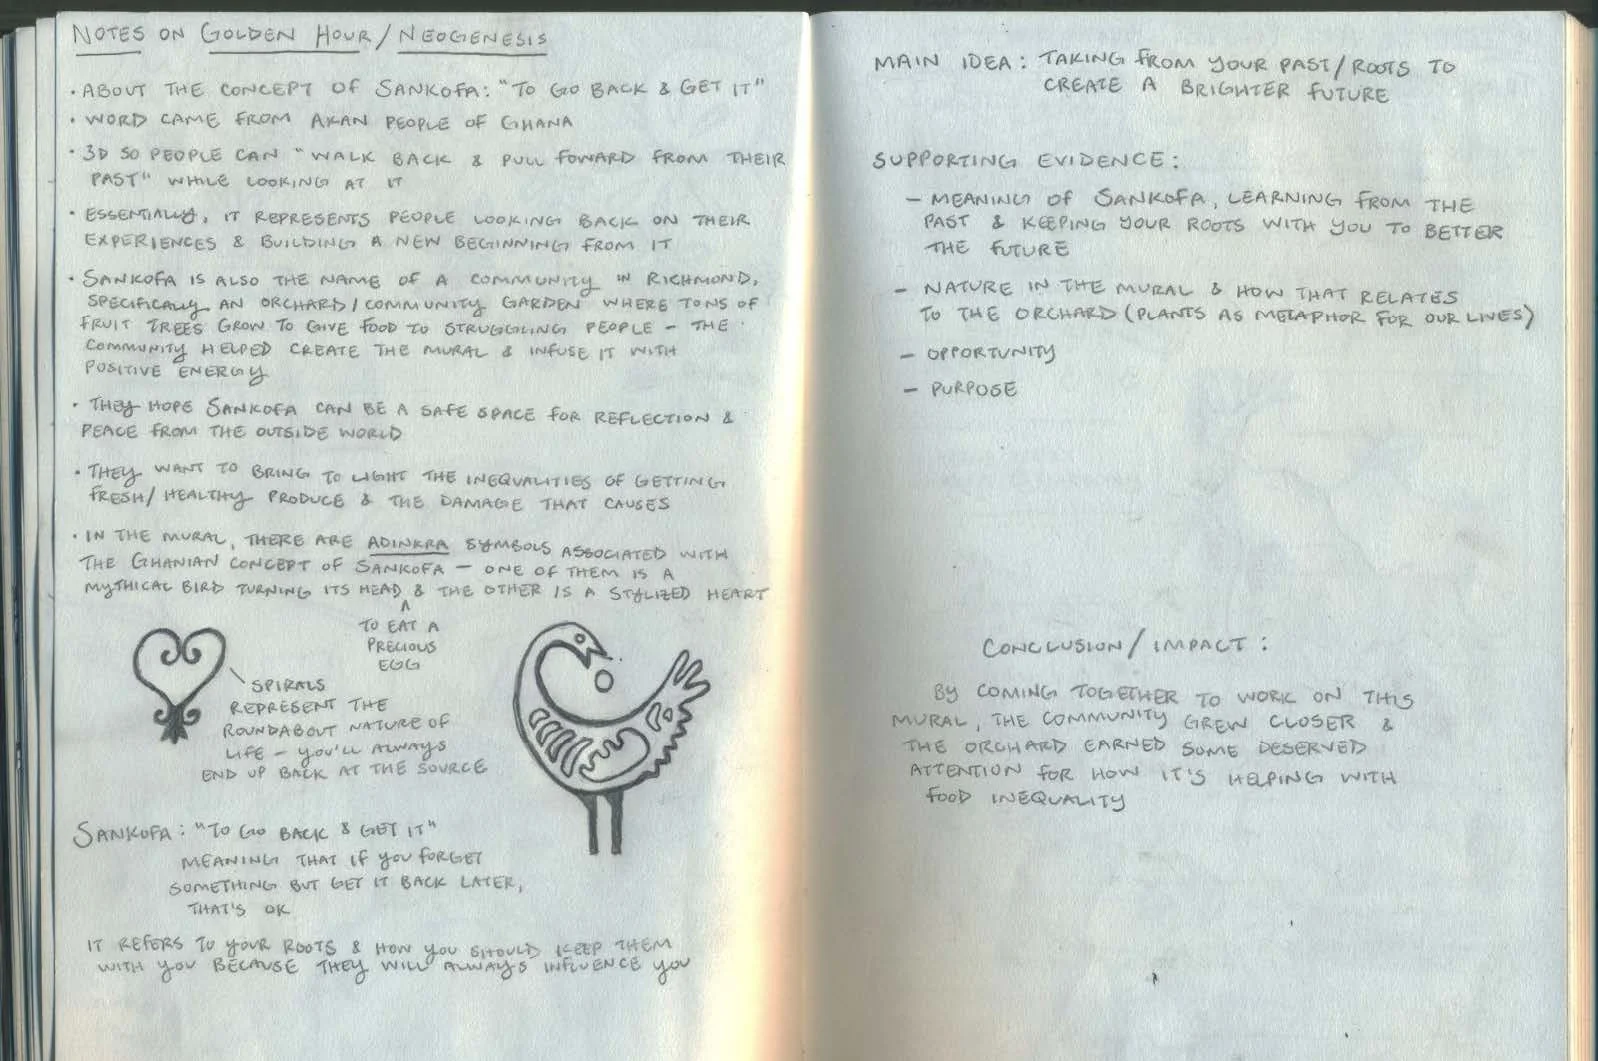 NOTES ON GOLDEN HOUR/NEOGENESIS
• ABOUT THE CONCEPT OF SANKOFA: "TO GO BACK & GET IT"
• WORD CAME FROM AKAN PEOPLE OF GHANA
• 3D SO PEOPLE CAN "WALK BACK & PULL FOWARD FROM THEIR
PAST" WHILE LOOKING AT IT
• ESSENTIALLY, IT REPRESENTS PEOPLE LOOKING BACK ON THEIR
EXPERIENCES & BUILDING A NEW BEGINNING FROM IT
• SANKOFA IS ALSO THE NAME OF A COMMUNITY IN RICHMOND,
SPECIFICALLY AN ORCHARD/COMMUNITY GARDEN WHERE TONS OF
FRUIT TREES GROW TO GIVE FOOD TO STRUGGLING PEOPLE – THE
COMMUNITY HELPED CREATE THE MURAL & INFUSE IT WITH
POSITIVE ENERGY
• THEY HOPE SANKOFA CAN BE A SAFE SPACE FOR REFLECTION &
PEACE FROM THE OUTSIDE WORLD
• THEY WANT TO BRING TO LIGHT THE INEQUALITIES OF GETTING
FRESH/HEALTHY PRODUCE & THE DAMAGE THAT CAUSES
• IN THE MURAL, THERE ARE ADINKRA SYMBOLS ASSOCIATED WITH
THE GHANIAN CONCEPT OF SANKOFA – ONE OF THEM IS A
MYTHICAL BIRD TURNING ITS HEAD & THE OTHER IS A STYLIZED HEART
^
TO EAT A
PRECIOUS
EGG
SPIRALS
REPRESENT THE
ROUNDABOUT NATURE OF
LIFE – YOU'LL ALWAYS
END UP BACK AT THE SOURCE
SANKOFA: "TO GO BACK & GET IT"
MEANING THAT IF YOU FORGET
SOMETHING BUT GET IT BACK LATER,
THAT'S OK
IT REFERS TO YOUR ROOTS & HOW YOU SHOULD KEEP THEM
WITH YOU BECAUSE THEY WILL ALWAYS INFLUENCE YOU
MAIN IDEA: TAKING FROM YOUR PAST/ROOTS TO
CREATE A BRIGHTER FUTURE
SUPPORTING EVIDENCE:
– MEANING OF SANKOFA, LEARNING FROM THE
PAST & KEEPING YOUR ROOTS WITH YOU TO BETTER
THE FUTURE
– NATURE IN THE MURAL & HOW THAT RELATES
TO THE ORCHARD (PLANTS AS METAPHOR FOR OUR LIVES)
– OPPORTUNITY
– PURPOSE
CONCLUSION/IMPACT:
BY COMING TOGETHER TO WORK ON THIS
MURAL, THE COMMUNITY GREW CLOSER &
THE ORCHARD EARNED SOME DESERVED
ATTENTION FOR HOW IT'S HELPING WITH
FOOD INEQUALITY